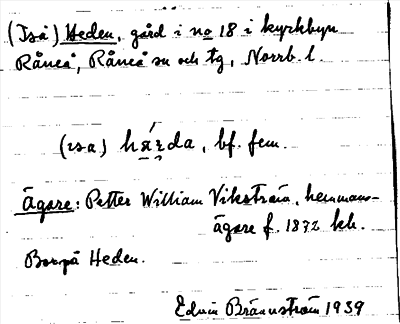 (Iså) Heden, gård i no 18 i kyrkbyn
Råneå, Råneå sn och tg, Norrb. l.
(ısa) bf. fem.
Ägare: Petter William Vikström, hemmans-
ägare f. 1872 kh.
Bor på Heden.
Edvin Brännström 1939